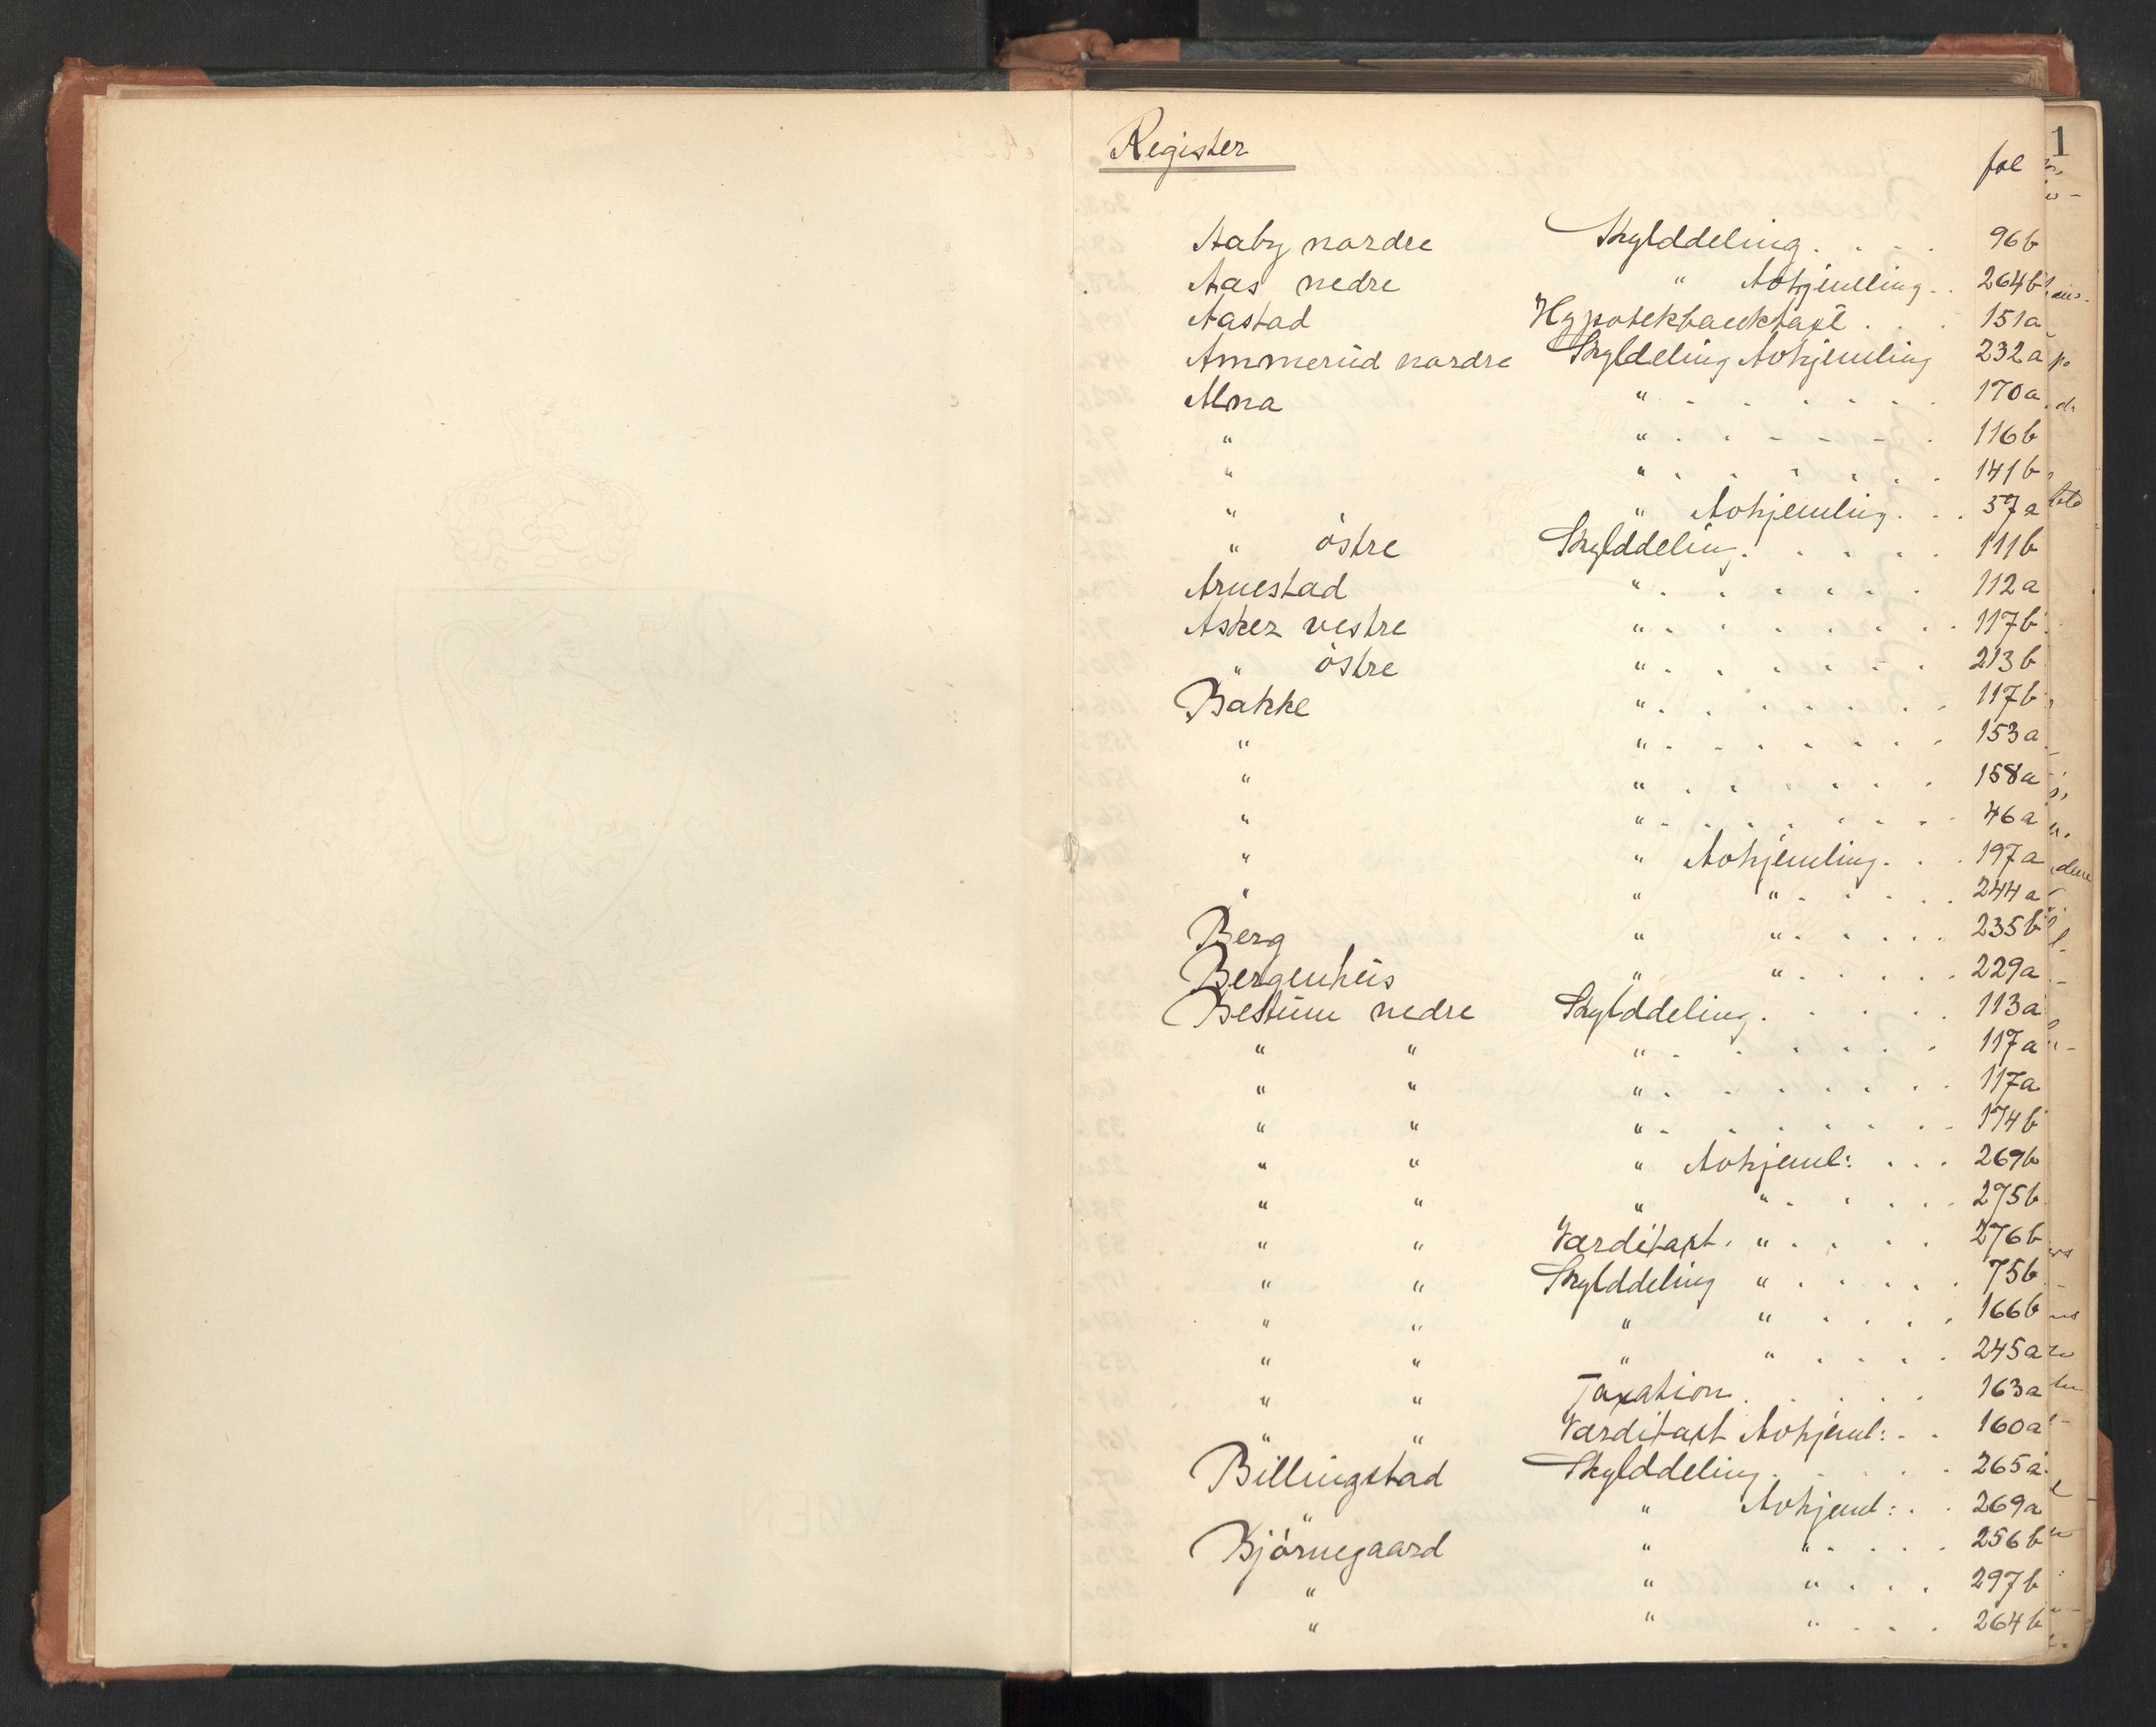 Register
fol
Aaby nordre Skylddeling . . . . 96b
Aas nedre " Aohjemling . . 264b
Aastad Hypotekbanktaxt . . . 151a
Ammerud nordre Skyldeling Aohjemling 232a
Alna " . . . . . . 170a
" " . . . . . . 116b
" " . . . . . . 141b
" " Aohjemling . . . 57a
" østre Skylddeling . . . . . 111b
Arnestad " . . . . . . 112a
Asker vestre " . . . . . . 117b
" østre " . . . . . . 213b
Bakke " . . . . . . 117b
" " . . . . . . 153a
" " . . . . . . 158a
" " . . . . . . 46a
" " Aohjemling . . . 197a
" " " . . . . . 244a
Berg " " . . . . . 235b
Bergenhus " " . . . . . 229a
Bestum nedre Skylddeling . . . . . 113a
" " " . . . . . . 117a
" " " . . . . . . 117a
" " " . . . . . . 174b
" " " Aohjeml: . . . 269b
" " " " . . . . 275b
" " Værditaxt . " . . . . 276b
" " Skylddeling " . . . . . 75b
" " " " . . . . 166b
" " " " . . . . 245a
" " Taxation . . . . . 163a
" " Værditaxt Aohjeml: . . 160a
Billingstad Skylddeling . . . . . 265a
" " Aohjeml: . . 269a
Bjørnegaard " " . . . . 256b
" " " . . . . 297b
" " " . . . . 264b
1